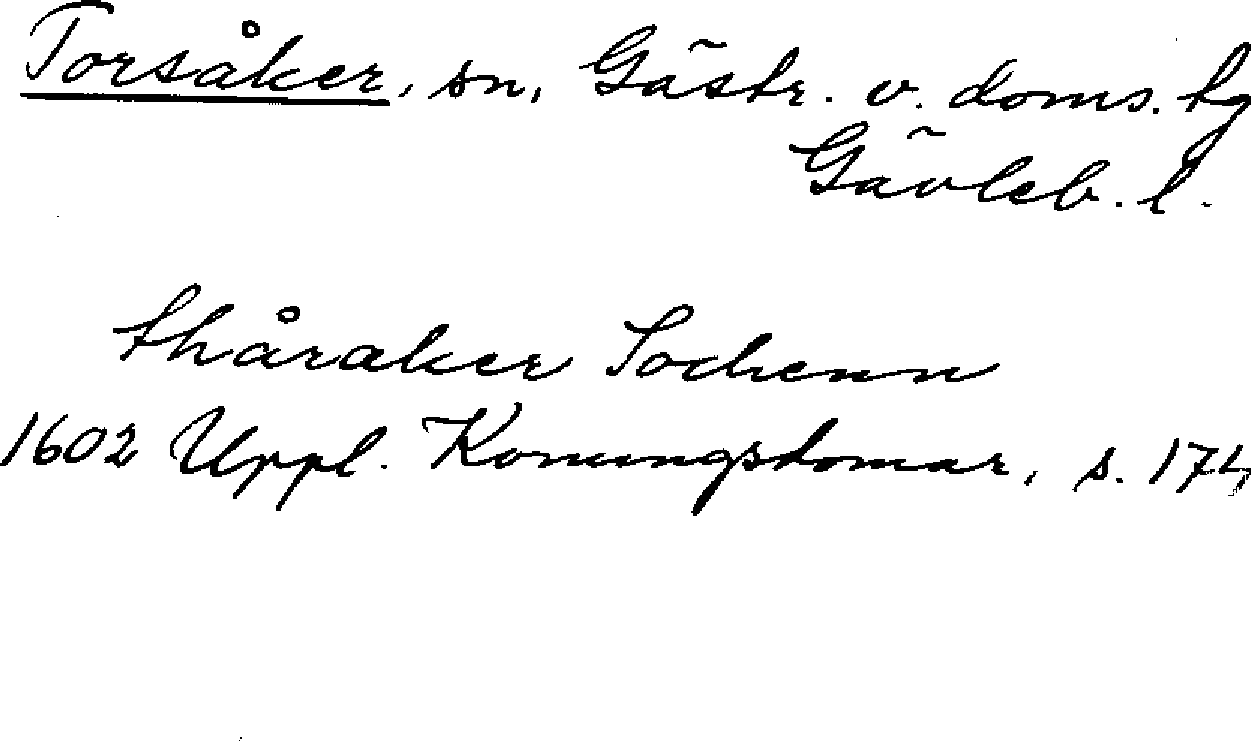 Torsåker, sn, Gästr. v. doms. tg
Gävleb. l.
thåraker Sochenn
1602 Uppl. Konungsdomar, s. 174